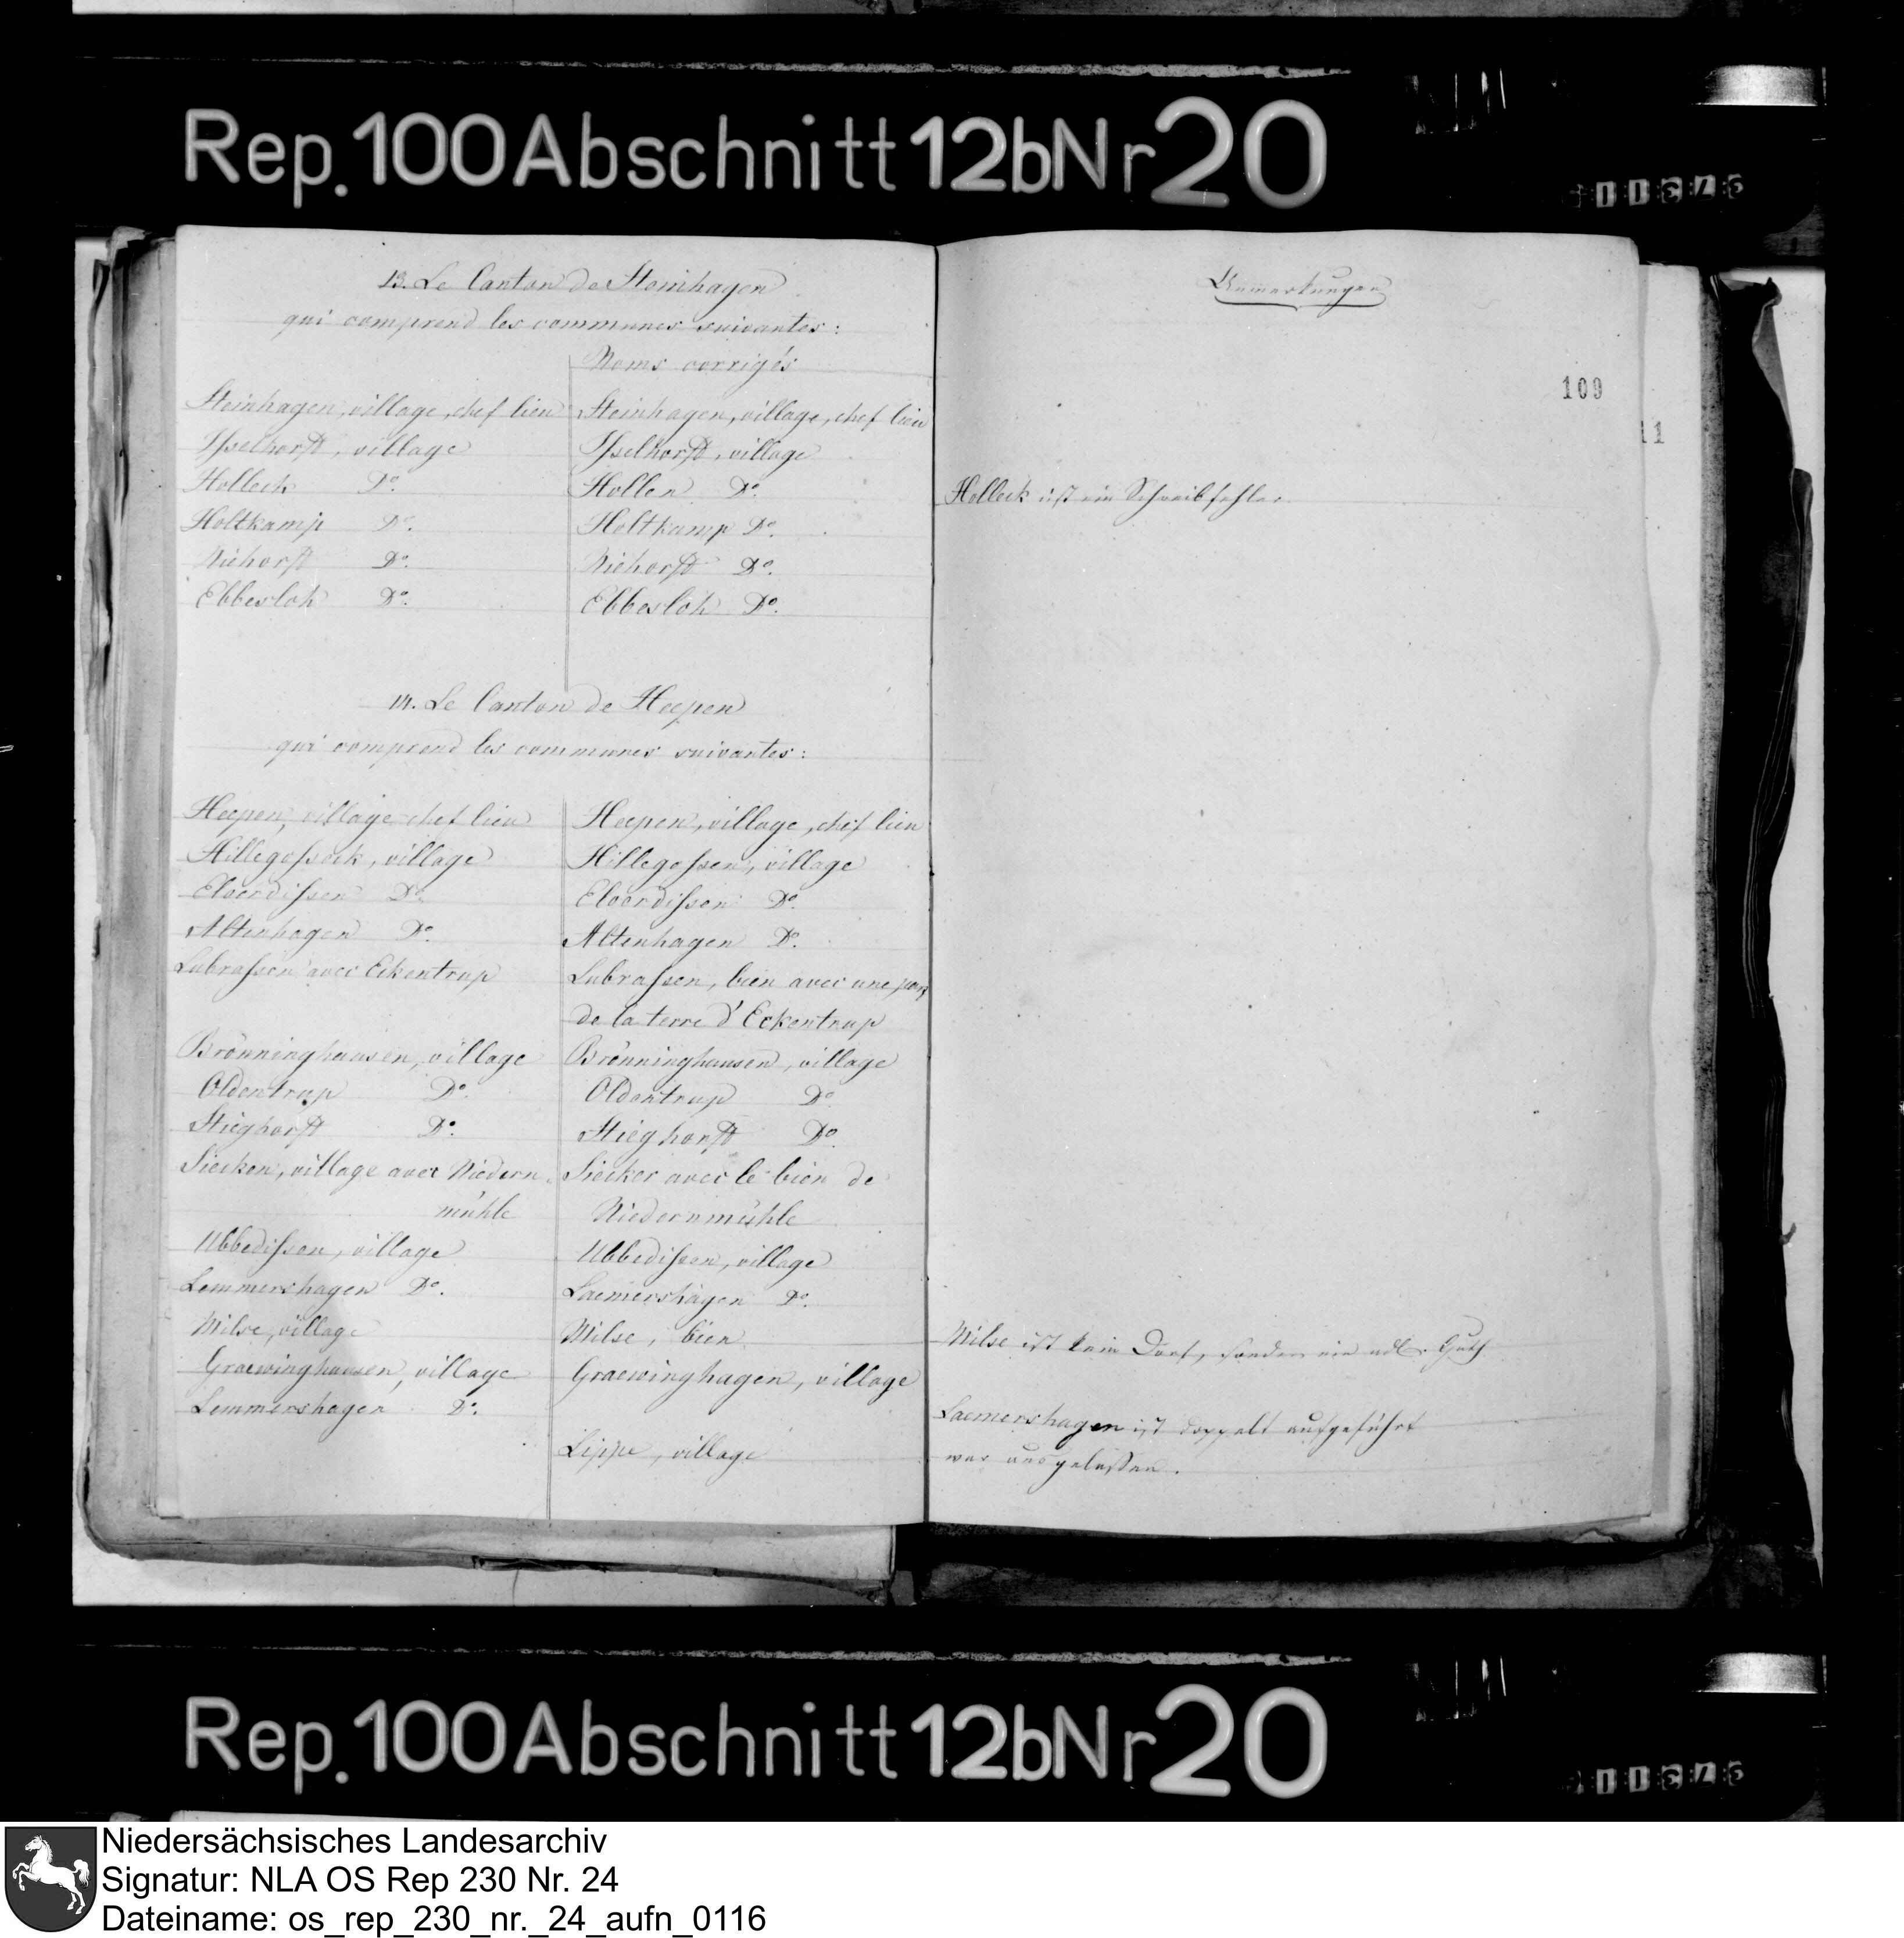 Rep. 100 Abschnitt 12b Nr 20
13. Le Canton de Steinhagen
qui comprend les communes suivantes:
Noms corrigés
Steinhagen, village, chef lieu
Isselhorst, village
Holleck Do.
Holtkamp Do.
Niehorst Do.
Ebbesloh Do.
Steinhagen, village, chef lieu
Isselhorst, village
Hollen Do.
Holtkamp Do.
Niehorst Do.
Ebbesloh Do.
14. Le Canton de Heepen
qui comprend les communes suivantes:
Heepen, village chef lieu
Hillegosseck, village
Elverdissen Do.
Altenhagen Do.
Lubrassen avec Eckentrup
Brönninghausen, village
Oldentrup Do.
Stieghorst Do.
Siecken, village avec Niedern-
mühle
Ubbedissen, village
Lemmershagen Do.
Milse, village
Graewinghausen, village
Lemmershagen Do.
Heepen, village, chef lieu
Hillegossen, village
Elverdissen Do.
Altenhagen Do.
Lubrassen, bien avec une
de la terre d'Eckentrup
Brönninghausen, village
Oldentrup Do
Stieghorst Do
Siecker avec le bien de
Niedernmühle
Ubbedissen, village
Laemershagen Do.
Milse, bien
Graewinghagen, village
Lippe, village
Bemerkungen
109
11
Holleck ist ein Schreibfehler
Milse ist kein Dorf, sondern ein adl. Guth
Laemershagen ist doppelt aufgeführt
war ausgelassen.
Rep. 100 Abschnitt 12b Nr 20
Niedersächsisches Landesarchiv
Signatur: NLA OS Rep 230 Nr. 24
Dateiname: os_rep_230_nr._24_aufn_0116